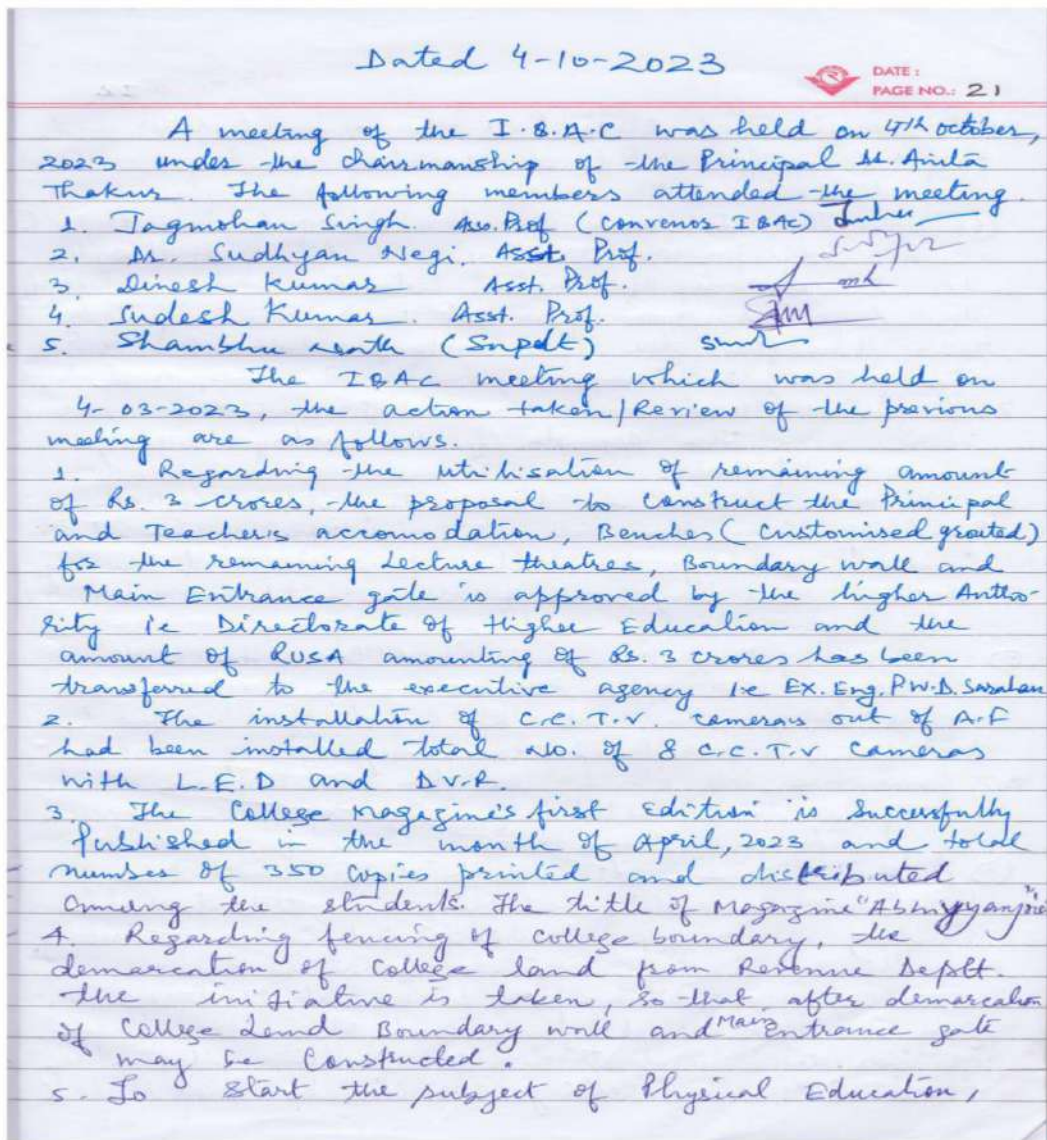 Dated 4-10-2023
DATE :
PAGE NO.: 21
A meeting of the I.Q.A.C was held on 4th october,
2023 under the chairmanship of the Principal Dr. Anita
Thakur. The following members attended the meeting.
1. Jagmohan Singh. Asso. Prof (Convenor IQAC)
2. Dr. Sudhyan Negi. Asst. Prof.
3. Dinesh Kumar Asst. Prof.
4. Sudesh Kumar. Asst. Prof.
5. Shambhu Nath (Supdt)
The IQAC meeting which was held on
4-03-2023, the action taken/Review of the previous
meeting are as follows.
1. Regarding the utilisation of remaining amount
of Rs. 3 crores, the proposal to construct the Principal
and Teacher's accomodation, Benches (customised grouted)
for the remaining Lecture theatres, Boundary wall and
Main Entrance gate is approved by the higher Autho-
rity ie Directorate of Higher Education and the
amount of RUSA amounting of Rs. 3 crores has been
transferred to the executive agency ie EX. Eng. P.W.D. Sarahan
2. The installation of C.C.T.V. cameras out of A.F
had been installed total No. of 8 C.C.T.V cameras
with L.E.D and D.V.R.
3. The College Magazine's first edition is successfully
published in the month of April, 2023 and total
number of 350 copies printed and distributed
among the students. The title of Magazine
4. Regarding fencing of college boundary, the
demarcation of College land from Revenue Deptt.
the initiative is taken, so that after demarcation
of College Land Boundary wall and Main Entrance gate
may be Constructed.
5. To Start the subject of Physical Education,